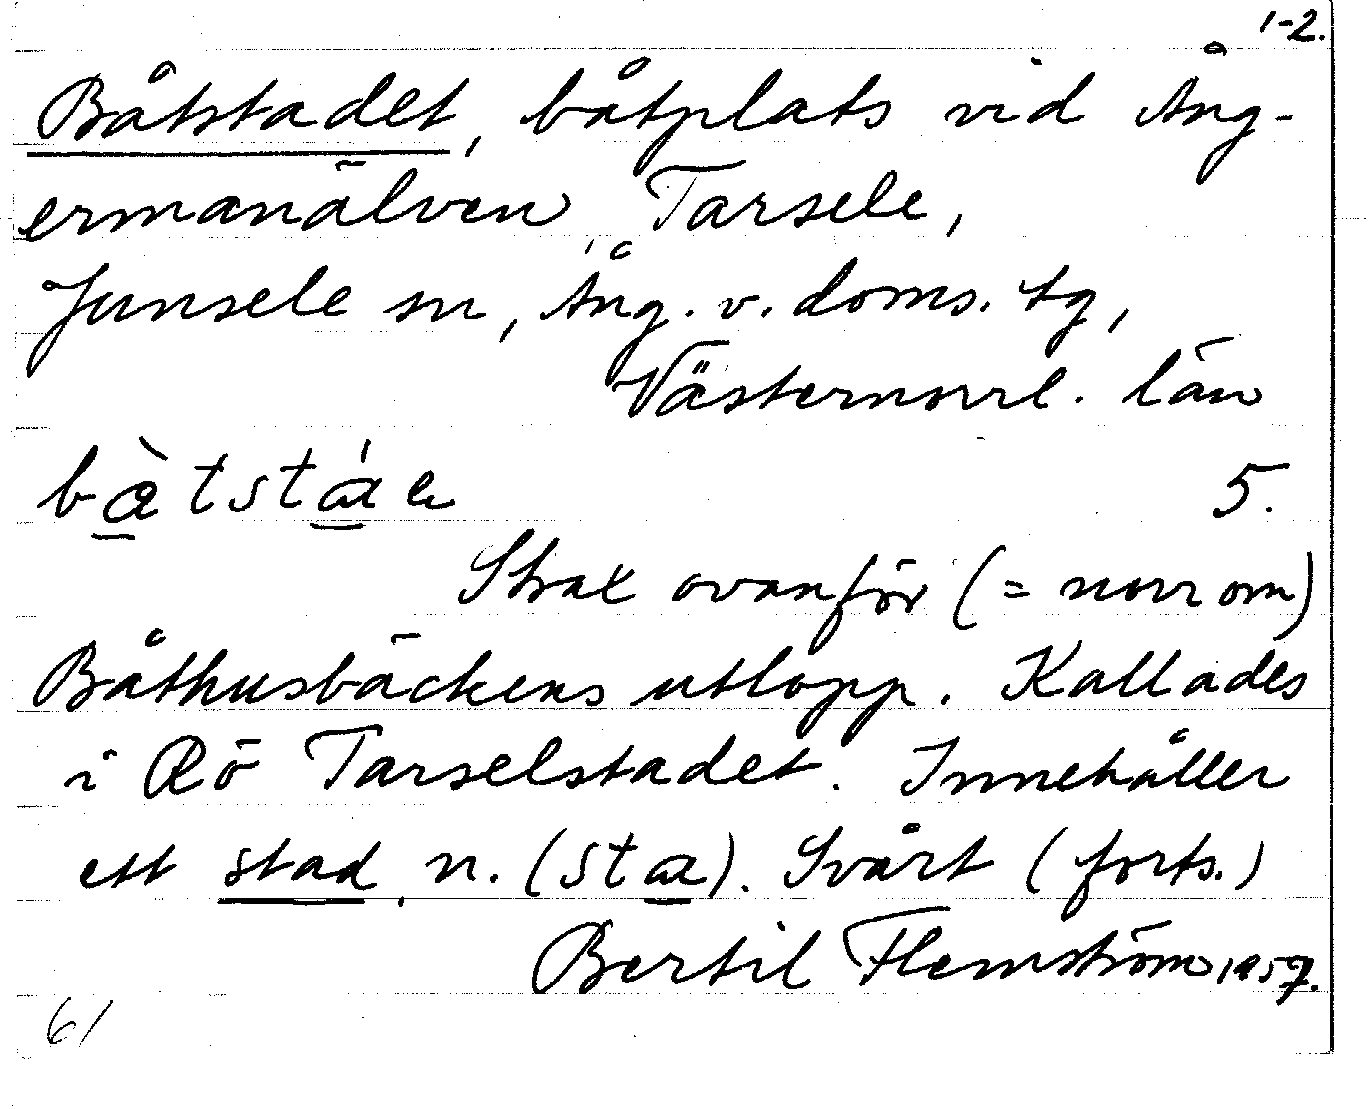 1-2.
Båtstadet, båtplats vid Ång-
ermanälven, Tarsele,
Junsele sn, Ång. v. doms. tg,
Västernorrl. län
5.
Strax ovanför (= norr om)
Båthusbäckens utlopp. Kallades
i Rö Tarselstadet. Innehåller
ett stad, n. (sta). Svårt (forts.)
Bertil Flemström 1957.
61